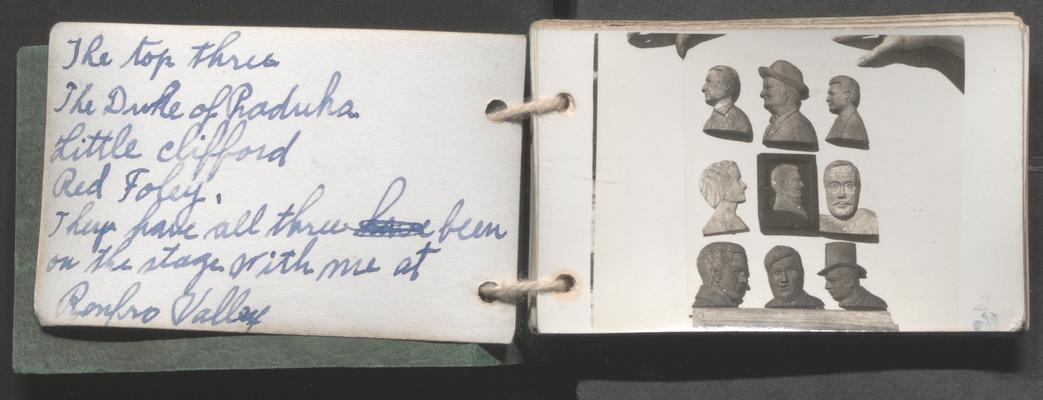 The top three
The Duke of Paduka
Little clifford
Red Foley.
They have all three have been
on the stage with me at
Renfro Valley